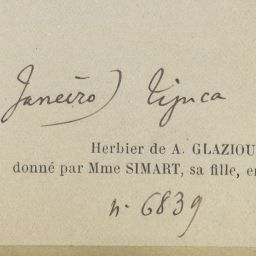 Janeiro) Tijuca
Herbier de A. GLAZIOU
donné par Mme SIMART, sa fille, en
n. 6839